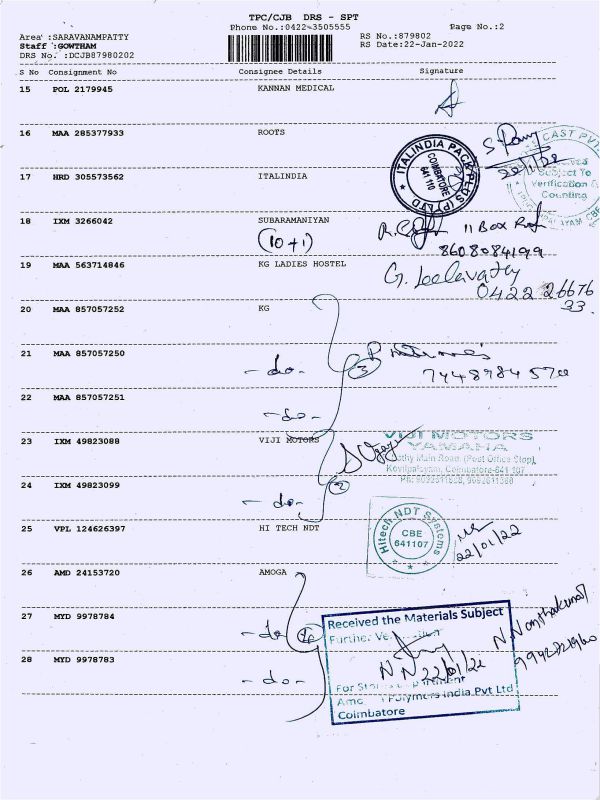 TPC/CJB DRS - SPT
Phone No.:0422-3505555
Page No.:2
Area :SARAVANAMPATTY
Staff :GOWTHAM
DRS No. :DCJB87980202
RS No.:879802
RS Date:22-Jan-2022
S No Consignment No Consignee Details Signature
15 POL 2179945 KANNAN MEDICAL
16 MAA 285377933 ROOTS
17 HRD 305573562 ITALINDIA
ITALINDIA PACK PLUS (P) LTD
COIMBATORE
641 110
CAST PVT
Subject To
Verification &
Counting
18 IXM 3266042 SUBARAMANIYAN
(10+1)
11 Box
8608084199
19 MAA 563714846 KG LADIES HOSTEL
G. Leelavathy
0422 26676
33.
20 MAA 857057252 KG
21 MAA 857057250
-do- 3
22 MAA 857057251
-do-
23 IXM 49823088 VIJI MOTORS
VIJI MOTORS
YAMAHA
Main Road, (Post Office Stop),
Kovilpalayam, Coimbatore-641 107
24 IXM 49823099
-do- 2
25 VPL 124626397 HI TECH NDT
Hitech NDT Systems
CBE
641107
22/01/22
26 AMD 24153720 AMOGA
27 MYD 9978784
-do-
Received the Materials Subject
Further
N.N 22/01/22
For
Polymers India Pvt Ltd
Coimbatore
N. Nanthakumar
28 MYD 9978783
-do-